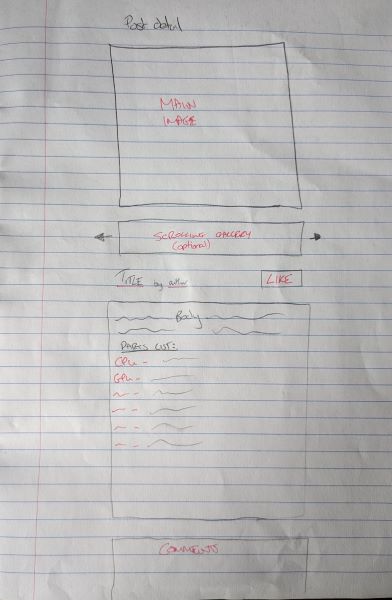 Post detail
MAIN
IMAGE
SCROLLING GALLERY
(optional)
TITLE by author
LIKE
Body
PARTS LIST:
CPU -
GPU -
COMMENTS